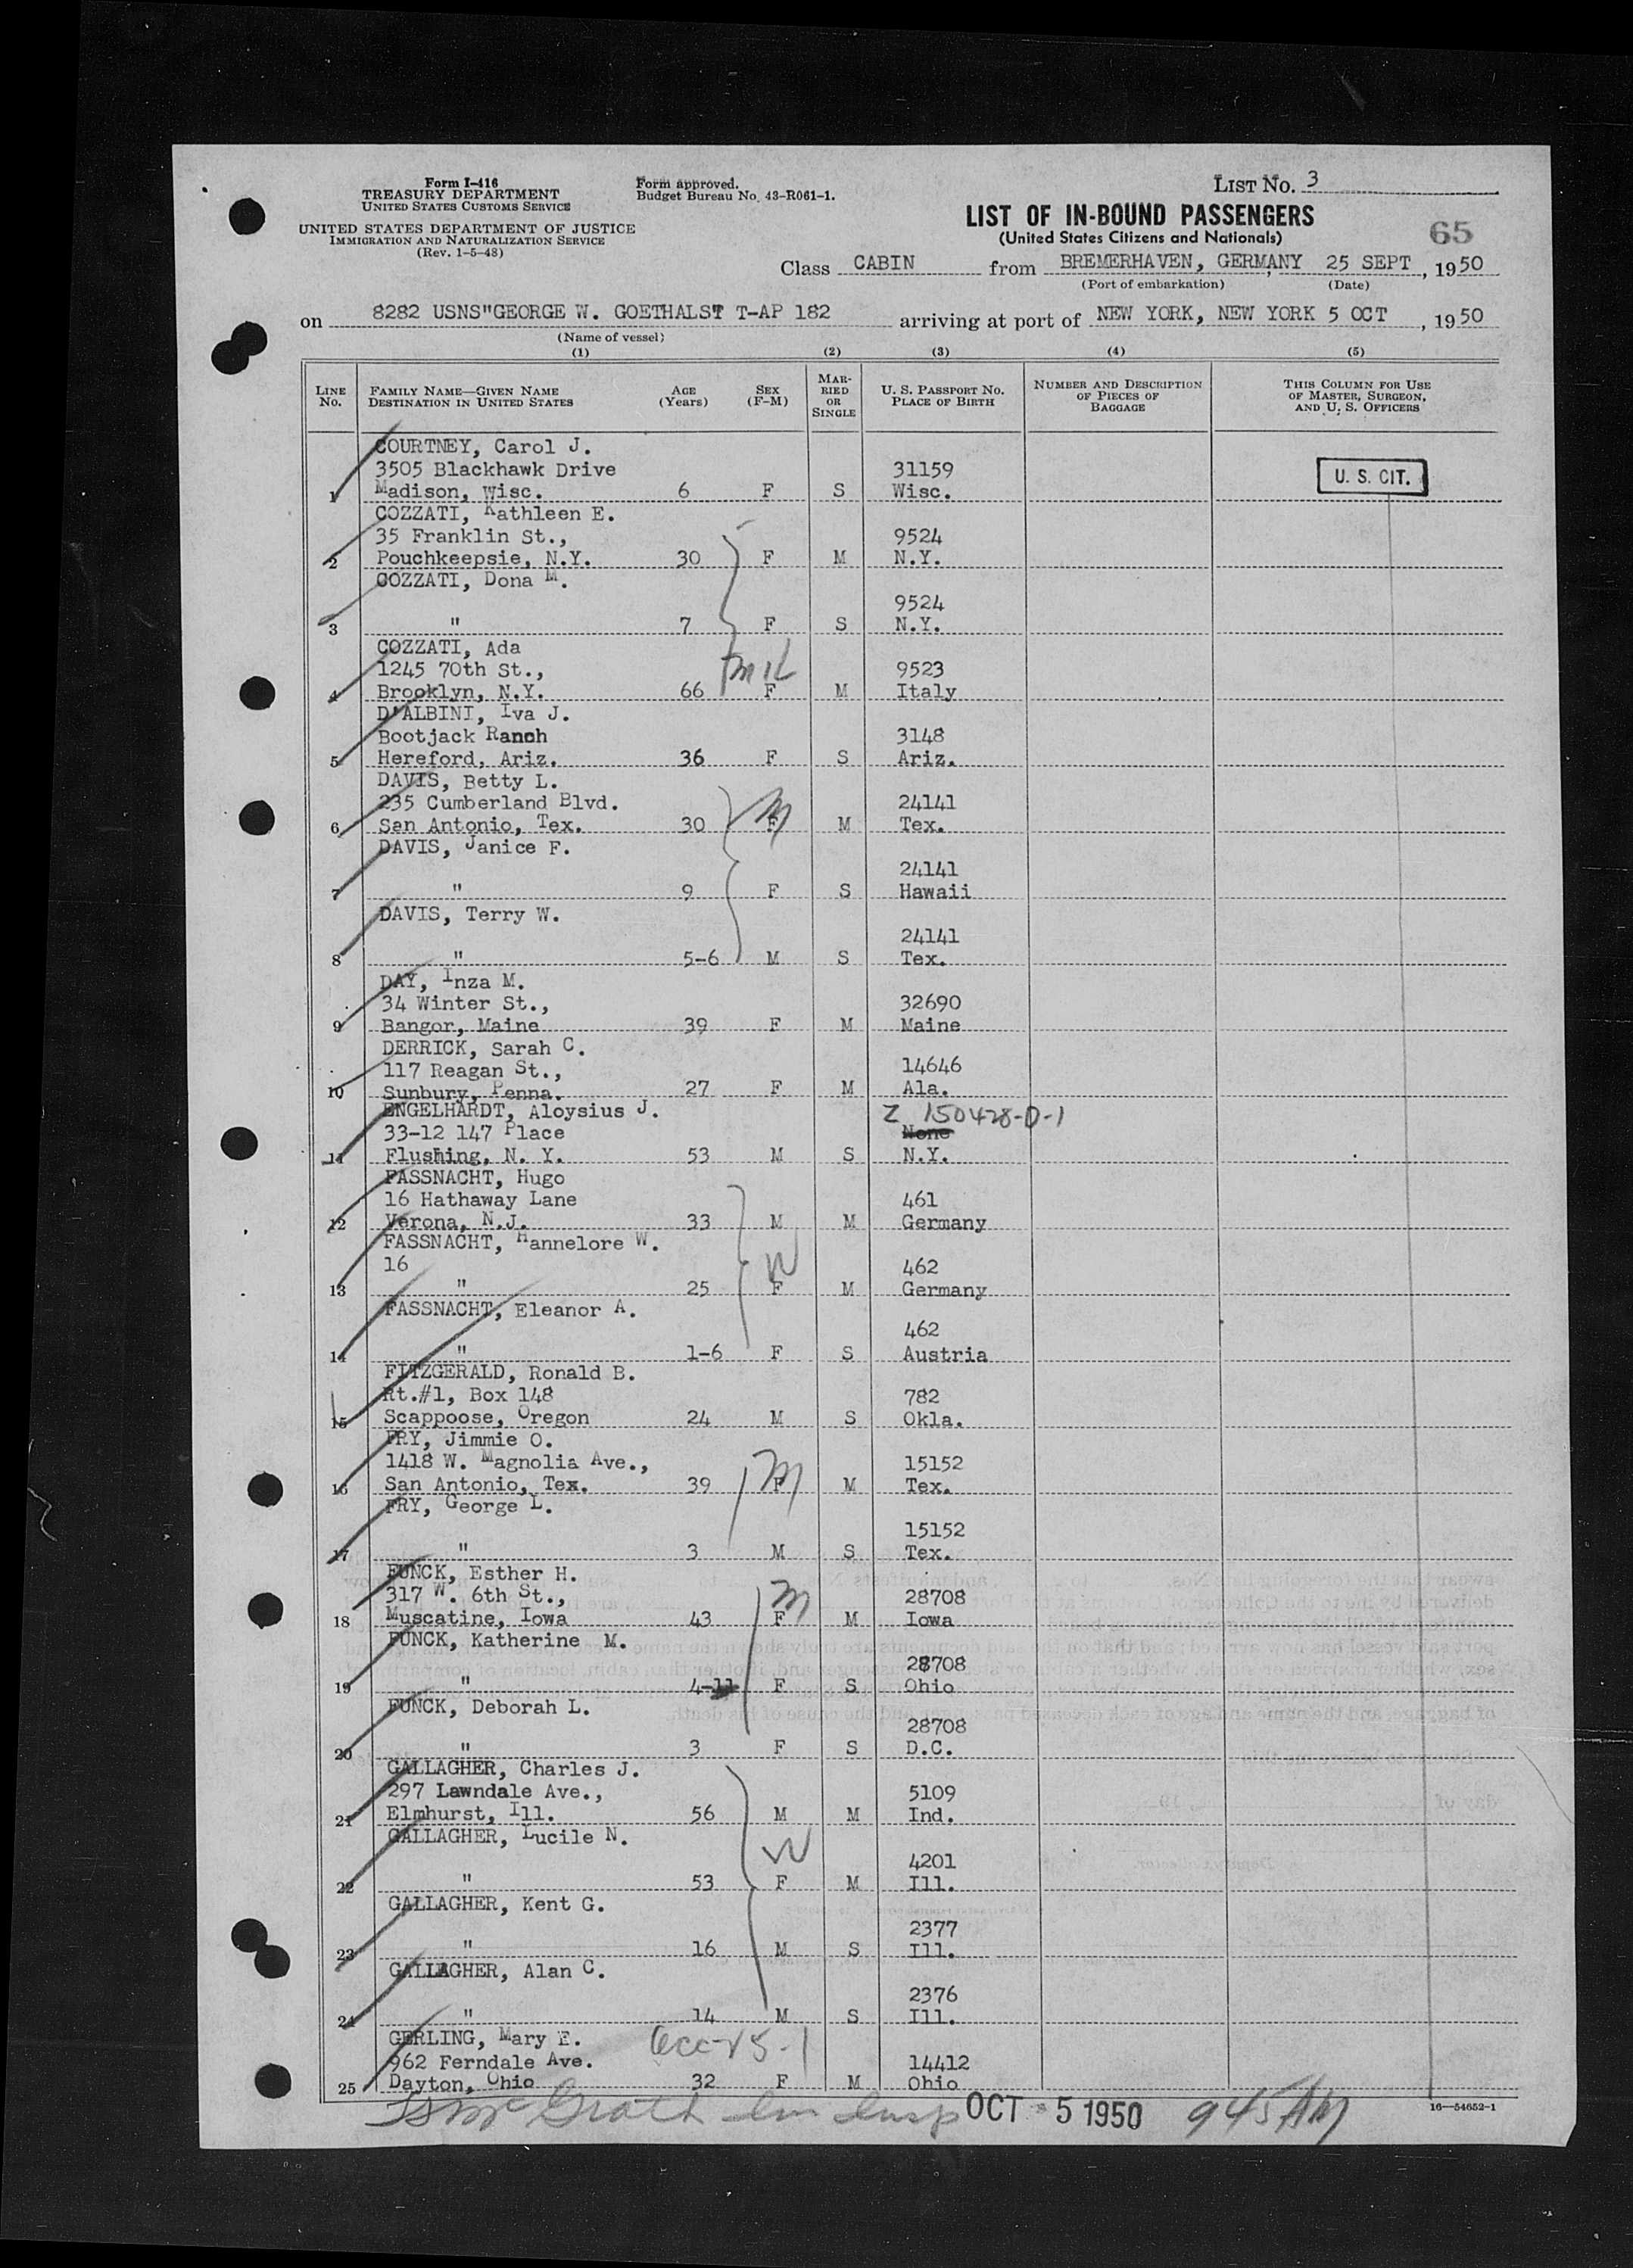 Form I-416
TREASURY DEPARTMENT
UNITED STATES CUSTOMS SERVICE
UNITED STATES DEPARTMENT OF JUSTICE
IMMIGRATION AND NATURALIZATION SERVICE
(Rev. 1-5-48)
Form approved.
Budget Bureau No. 43-R061-1.
LIST NO. 3
LIST OF IN-BOUND PASSENGERS
(United States Citizens and Nationals)
65
Class CABIN from BREMERHAVEN, GERMANY 25 SEPT, 1950
(Port of embarkation) (Date)
on 8282 USNS"GEORGE W. GOETHALS" T-AP 182 arriving at port of NEW YORK, NEW YORK 5 OCT, 1950
(Name of vessel)
(1) (2) (3) (4) (5)
LINE No. FAMILY NAME—GIVEN NAME DESTINATION IN UNITED STATES AGE (Years) SEX (F-M) MARRIED OR SINGLE U. S. PASSPORT NO. PLACE OF BIRTH NUMBER AND DESCRIPTION OF PIECES OF BAGGAGE THIS COLUMN FOR USE OF MASTER, SURGEON, AND U. S. OFFICERS
COURTNEY, Carol J.
3505 Blackhawk Drive 31159 U. S. CIT.
1 Madison, Wisc. 6 F S Wisc.
COZZATI, Kathleen E.
35 Franklin St., 9524
2 Pouchkeepsie, N.Y. 30 F M N.Y.
COZZATI, Dona M.
9524
3 " 7 F S N.Y.
COZZATI, Ada
1245 70th St., 9523
4 Brooklyn, N.Y. 66 F M Italy
D'ALBINI, Iva J.
Bootjack Ranch 3148
5 Hereford, Ariz. 36 F S Ariz.
DAVIS, Betty L.
235 Cumberland Blvd. M 24141
6 San Antonio, Tex. 30 F M Tex.
DAVIS, Janice F.
24141
7 " 9 F S Hawaii
DAVIS, Terry W.
24141
8 " 5-6 M S Tex.
DAY, Inza M.
34 Winter St., 32690
9 Bangor, Maine 39 F M Maine
DERRICK, Sarah C.
117 Reagan St., 14646
10 Sunbury, Penna. 27 F M Ala.
ENGELHARDT, Aloysius J. Z 150428-D-1
33-12 147 Place None
11 Flushing, N. Y. 53 M S N.Y.
FASSNACHT, Hugo
16 Hathaway Lane 461
12 Verona, N.J. 33 M M Germany
FASSNACHT, Hannelore W.
16 W 462
13 " 25 F M Germany
FASSNACHT, Eleanor A.
462
14 " 1-6 F S Austria
FITZGERALD, Ronald B.
Rt.#1, Box 148 782
15 Scappoose, Oregon 24 M S Okla.
FRY, Jimmie O.
1418 W. Magnolia Ave., M 15152
16 San Antonio, Tex. 39 F M Tex.
FRY, George L.
15152
17 " 3 M S Tex.
FUNCK, Esther H.
317 W. 6th St., M 28708
18 Muscatine, Iowa 43 F M Iowa
FUNCK, Katherine M.
28708
19 " 4-11 F S Ohio
FUNCK, Deborah L.
28708
20 " 3 F S D.C.
GALLAGHER, Charles J.
297 Lawndale Ave., 5109
21 Elmhurst, Ill. 56 M M Ind.
GALLAGHER, Lucile N.
W 4201
22 " 53 F M Ill.
GALLAGHER, Kent G.
2377
23 " 16 M S Ill.
GALLAGHER, Alan C.
2376
24 " 14 M S Ill.
GERLING, Mary E.
962 Ferndale Ave. 14412
25 Dayton, Ohio 32 F M Ohio
McGrath Im Insp OCT 5 1950 945 AM
16—54652-1